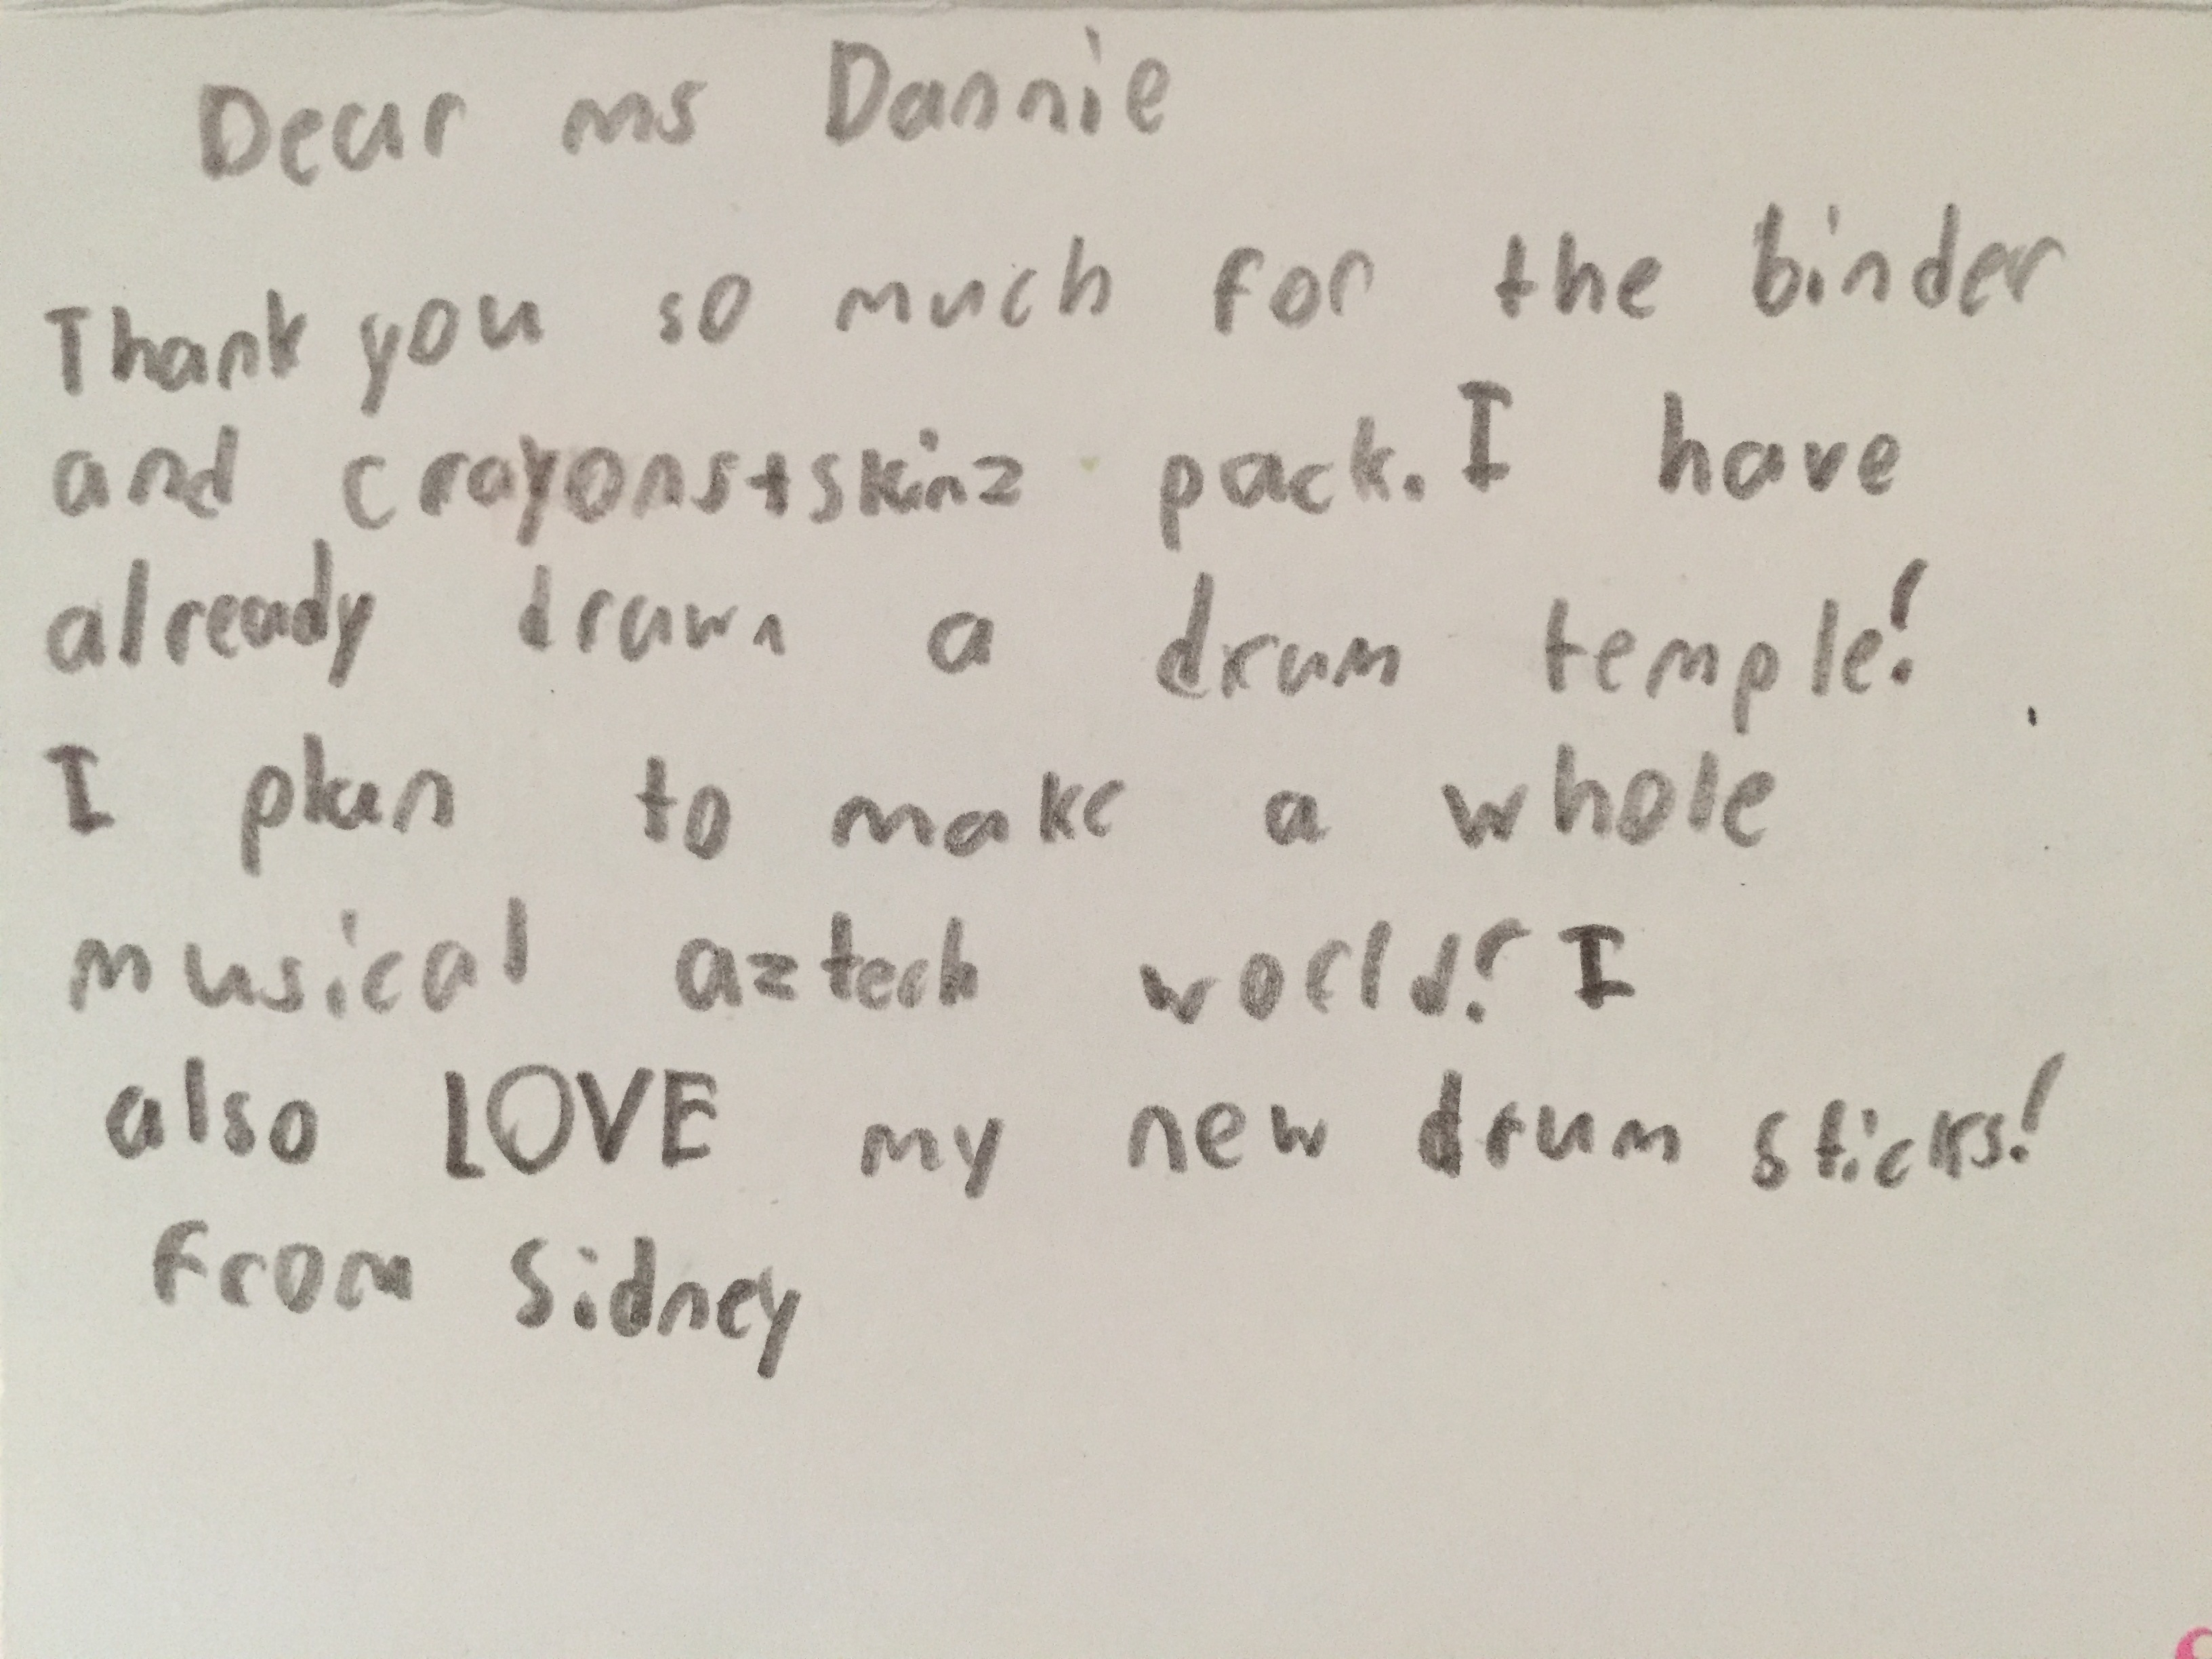 Dear ms Dannie
Thank you so much for the binder
and crayons+skinz pack. I have
already drawn a drum temple!
I plan to make a whole
musical aztech world! I
also LOVE my new drum sticks!
From Sidney